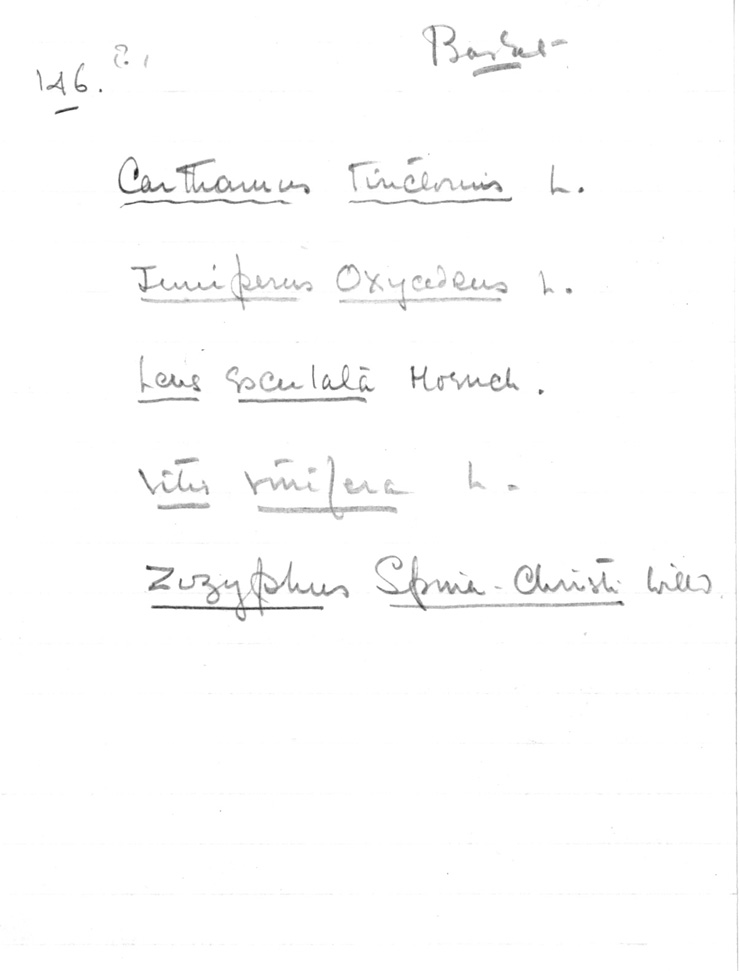 Basket
146.
Carthamus Tinctorius L.
Juniperus Oxycedrus L.
Lens esculata Moench.
Vitis Vinifera L.
Zizyphus Spina-Christi Willd.